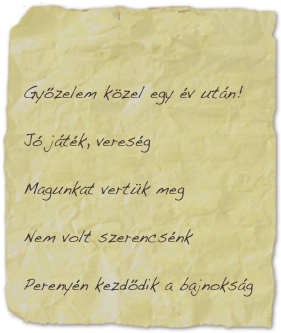 Győzelem közel egy év után!
Jó játék, vereség
Magunkat vertük meg
Nem volt szerencsénk
Perenyén kezdődik a bajnokság